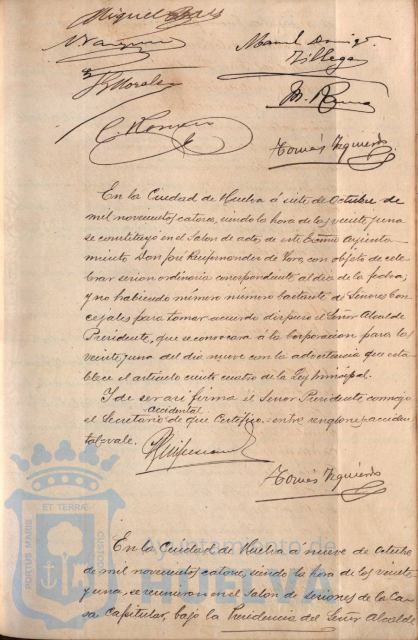 Miguel
Manuel Domingo
Villegas
Morales
M. Romero
C. Romero
Tomás Izquierdo
En la Ciudad de Huelva á siete de Octubre de
mil novecientos catorce, siendo la hora de las veinte y una
se constituyó en el Salon de actos de este Excmo Ayunta
miento Don José de Vero, con objeto de cele
brar sesion ordinaria correspondiente al dia de la fecha,
y no habiendo número bastante de Señores Con
cejales para tomar acuerdo dispuso el Señor Alcalde
Presidente, que se convocara á la Corporacion para las
veinte y una del dia nueve con la advertencia que esta
blece el articulo ciento cuatro de la Ley Municipal.
Y de ser asi firma el Señor Presidente conmigo
accidental
el Secretario de que Certifico.- entre renglones, acciden
tal=vale.
Tomás Izquierdo
PORTUS MARIS
ET TERRÆ
CUSTODIA
Ayuntamiento de
HUELVA
En la Ciudad de Huelva a nueve de Octubre
de mil novecientos catorce, siendo la hora de las veinte
y una, se reunieron en el Salon de Sesiones de la Ca
sa Capitular, bajo la Presidencia del Señor Alcalde